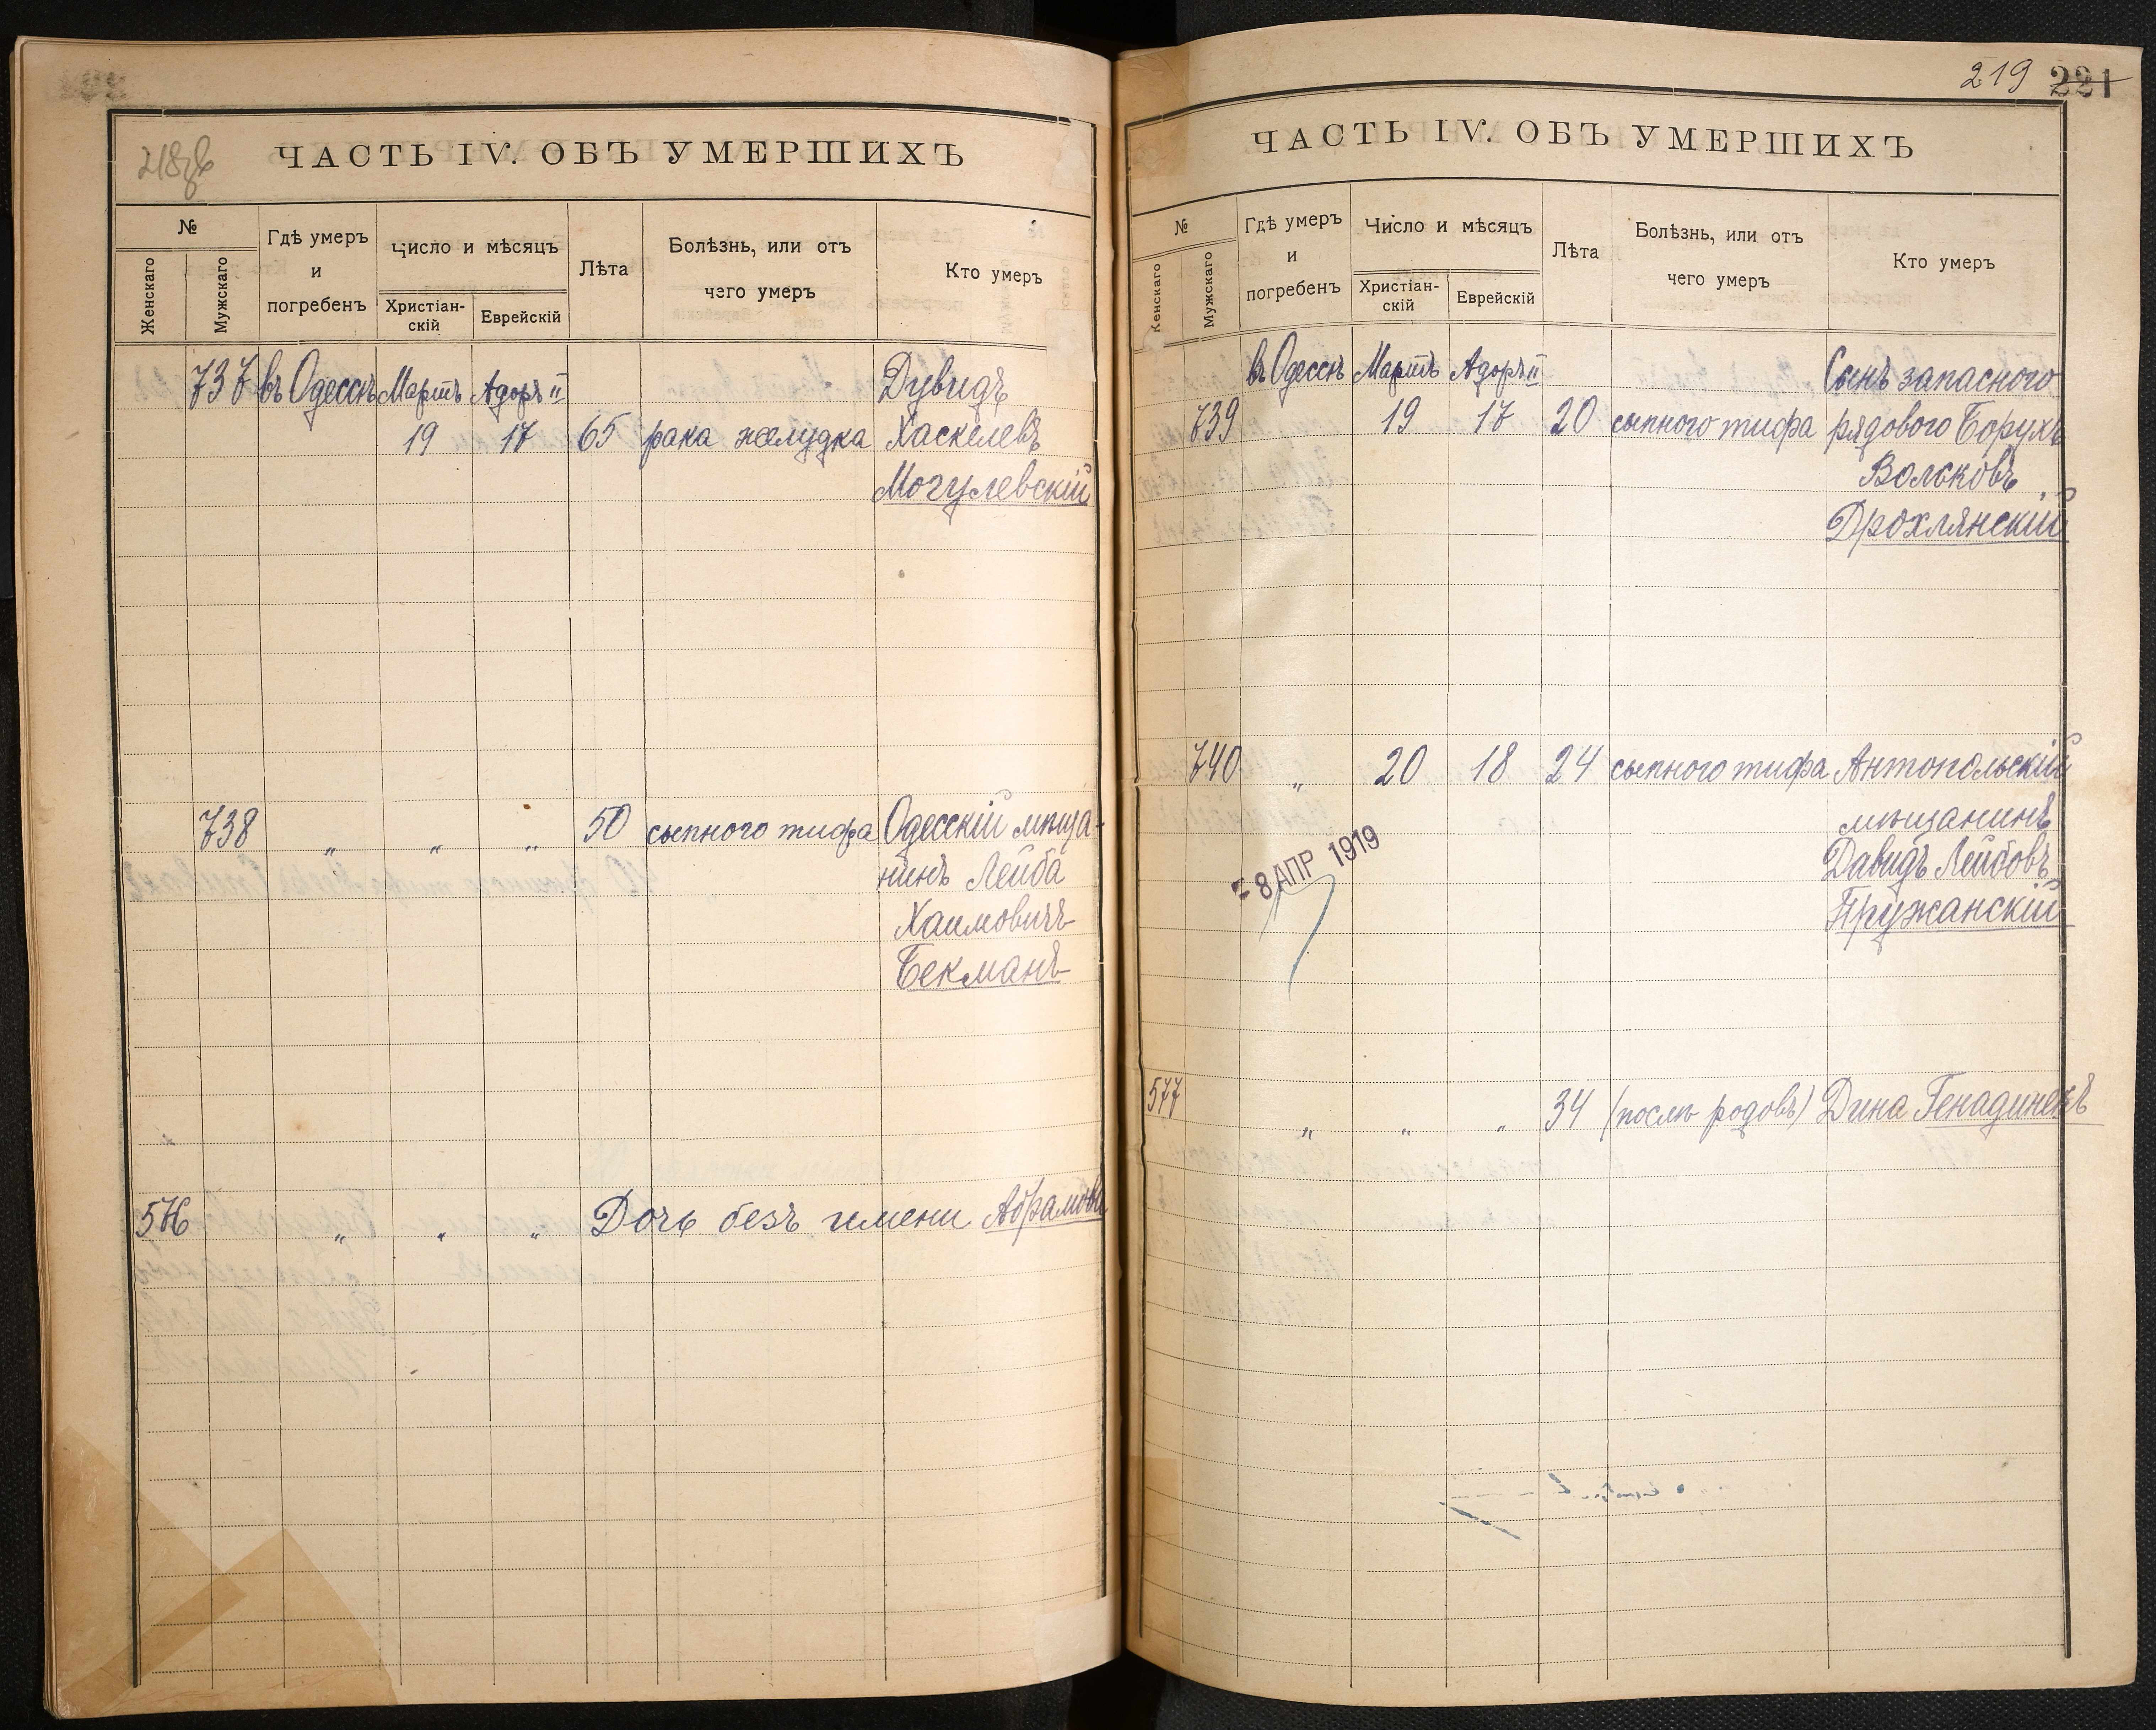 218 об
ЧАСТЬ IV. ОБЪ УМЕРШИХЪ
№
Женскаго
Мужскаго
Гдѣ умеръ
и
погребенъ
Число и мѣсяцъ
Христіан-
скій
Еврейскій
Лѣта
Болѣзнь, или отъ
чего умеръ
Кто умеръ
737 въ Одессѣ Мартъ Адоръ II Дувидъ
19 17 65 рака желудка Хаскелевъ
Могулевскій
738 „ „ „ 50 сыпного тифа Одесскій мѣща-
нинъ Лейба
Хаимовичъ
Бекманъ
576 „ „ „ Дочь безъ имени Абрамова
219 221
ЧАСТЬ IV. ОБЪ УМЕРШИХЪ
№
Женскаго
Мужскаго
Гдѣ умеръ
и
погребенъ
Число и мѣсяцъ
Христіан-
скій
Еврейскій
Лѣта
Болѣзнь, или отъ
чего умеръ
Кто умеръ
въ Одессѣ Мартъ Адоръ II Сынъ запасного
739 19 17 20 сыпного тифа рядового Борухъ
Вольковъ
Дрохлянскій
740 „ 20 18 24 сыпного тифа Антопольскій
мѣщанинъ
- 8 АПР 1919
Давидъ Лейбовъ
Пружанскій
577 „ „ „ 34 (послѣ родовъ) Дина